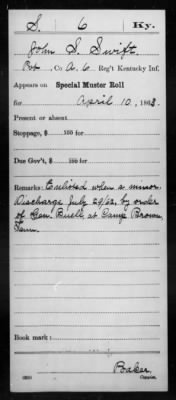 S. 6 Ky.
John S. Swift.
Pvt, Co. A. 6 Reg't Kentucky Inf.
Appears on Special Muster Roll
for April 10, 1863.
Present or absent
Stoppage, $ 100 for
Due Gov't, $ 100 for
Remarks: Enlisted when a minor.
Discharge July 29/62, by order
of Gen. Buell, at Camp Brown,
Tenn.
Book mark:
Baker,
Copyist.